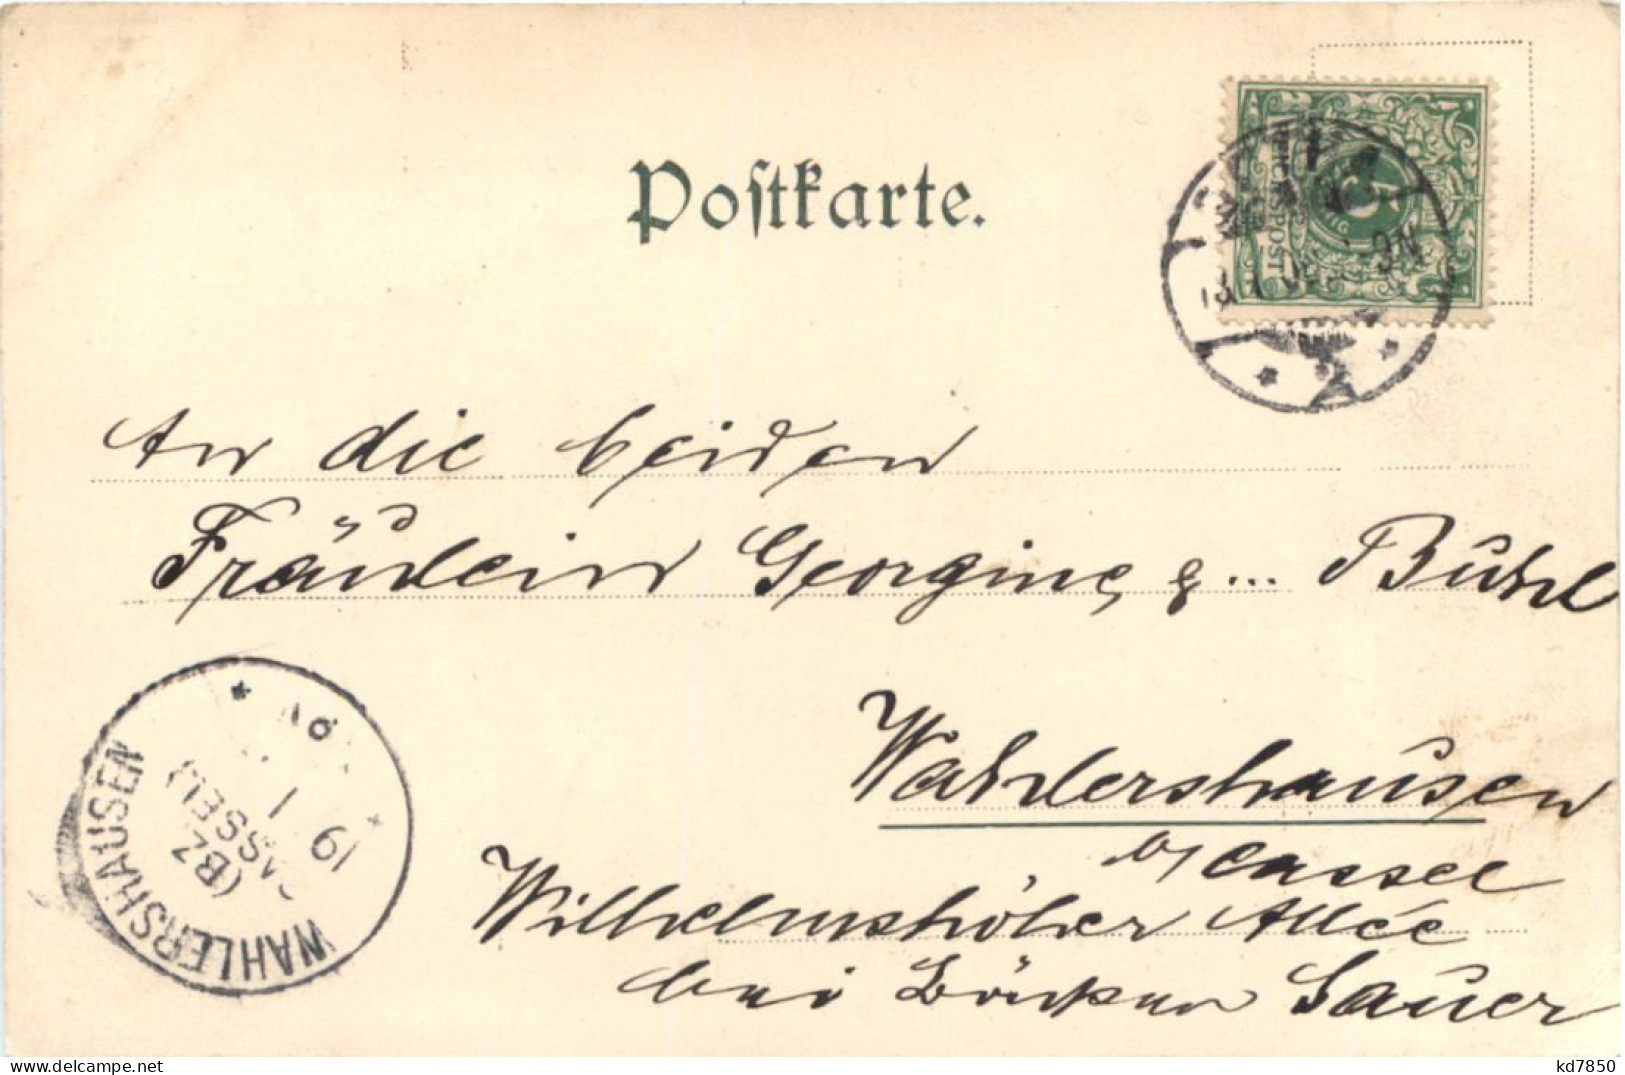 Postkarte.
REICHSPOST
5
An die beiden
Fräulein Georgine & ... Buhl
Wahlershausen
b/ Cassel
Wilhelmshöher Allée
bei Bäcker Sauer
WAHLERSHAUSEN
(BZ CASSEL)
19 1
kd7850